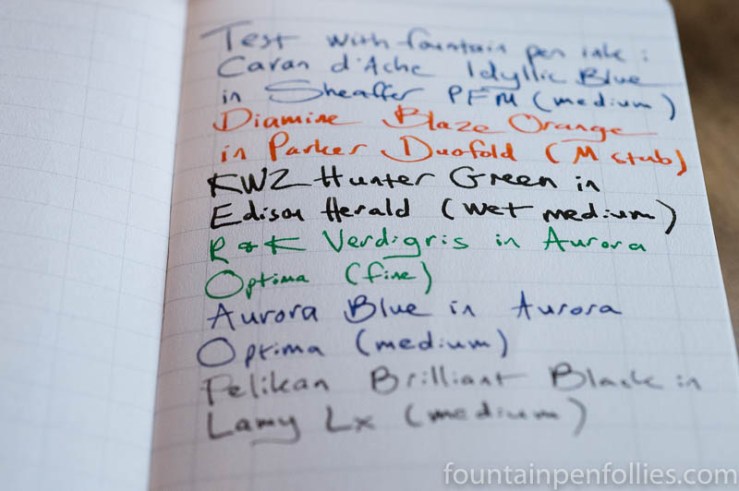 Test with fountain pen ink:
Caran d'Ache Idyllic Blue
in Sheaffer PFM (medium)
Diamine Blaze Orange
in Parker Duofold (M stub)
KWZ Hunter Green in
Edison Herald (wet medium)
R & K Verdigris in Aurora
Optima (fine)
Aurora Blue in Aurora
Optima (medium)
Pelikan Brilliant Black in
Lamy Lx (medium)
fountainpenfollies.com